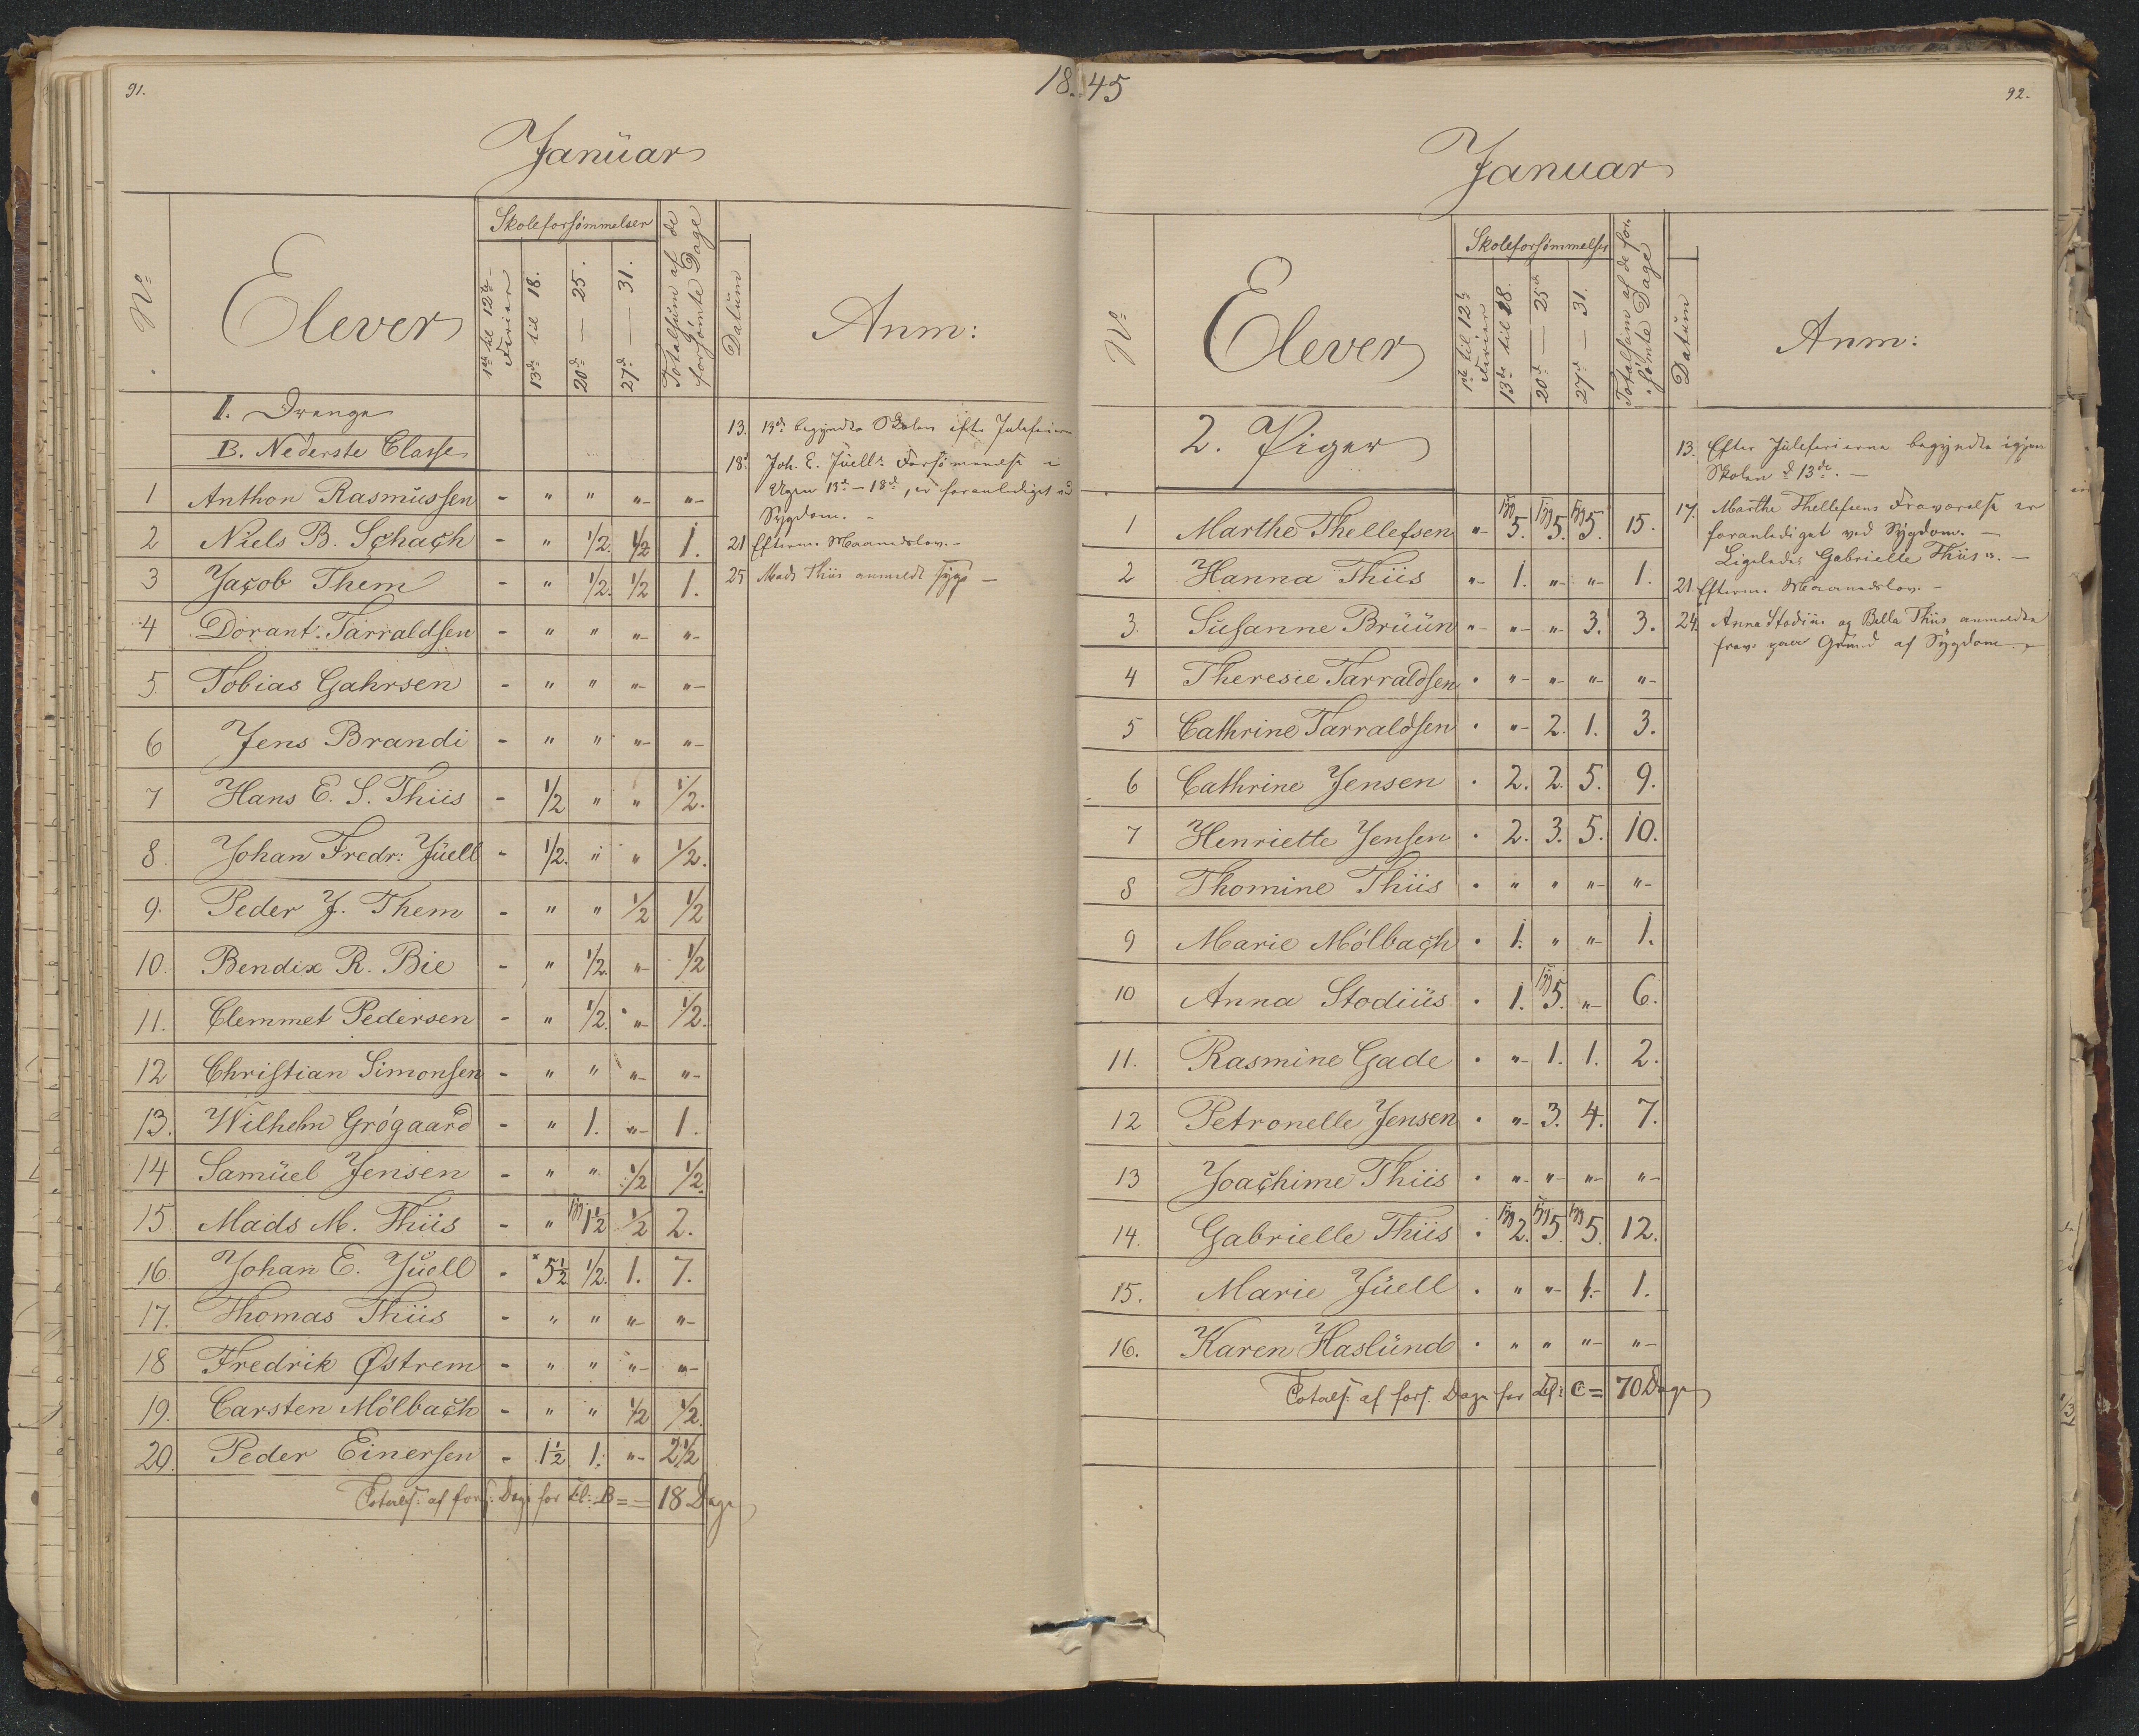 91.
18.45
Januar
Nº
Elever
Skoleforsømmelser
1ste til 12te Ferier
13de til 18.
20de — 25.
27de — 31.
Totalsum af de forsømte Dage
Datum
Anm:
I. Drenge
B. Nederste Classe
1 Anthon Rasmussen - " " "- "-
2 Niels B. Schach - " 1/2. 1/2 1.
3 Jacob Them - " 1/2. 1/2 1.
4 Dorant. Tarraldsen - " " "- "-
5. Tobias Gahrsen - " " "- "-
6 Jens Brandi - " " "- "-
7 Hans E. S. Thiis - 1/2 " " 1/2.
8. Johan Fredr: Juell - 1/2. " " 1/2.
9. Peder J. Them - " " 1/2 1/2
10. Bendix R. Bie - " 1/2. "- 1/2
11. Clemmet Pedersen - " 1/2. "- 1/2.
12 Christian Simonsen - " " "- "-
13. Wilhelm Grøgaard - " 1. "- 1.
14 Samuel Jensen - " " 1/2 1/2.
15 Mads M. Thiis - " syg 1 1/2 1/2 2.
16. Johan E. Juell - × 5 1/2 1/2. 1. 7.
17. Thomas Thiis - " " "- "-
18 Fredrik Østrem - " " "- "-
19. Carsten Mölbach - " " 1/2 1/2.
20. Peder Einersen - 1 1/2 1. "- 2 1/2
Totals: af fors: Dage for Cl: B = = 18 Dage
13. 13de begyndte Skolen efter Juleferien
18. Joh. E. Juells Forsømmelse i
Ugen 13de - 18de, er foranlediget ved
Sygdom. -
21 Efterm. Maanedslov. -
25 Mads Thiis anmeldt syg -
92.
Januar
Nº
Elever
Skoleforsømmelser
1ste til 12te Ferier
13de til 18.
20de — 25de
27de — 31.
Totalsum af de forsømte Dage
Datum
Anm:
2. Piger
1 Marthe Thellefsen "- syg 5. syg 5. syg 5. 15.
2 Hanna Thiis "- 1. "- "- 1.
3. Susanne Bruun "- "- "- 3. 3.
4 Theresie Tarraldsen . "- "- "- "-
5 Cathrine Tarraldsen . "- 2. 1. 3.
6 Cathrine Jensen . 2. 2. 5. 9.
7 Henriette Jensen . 2. 3. 5. 10.
8 Thomine Thiis . " " "- "-
9 Marie Mölbach . 1. " "- 1.
10 Anna Stodius . 1. syg 5. "- 6.
11. Rasmine Gade . "- 1. 1. 2.
12 Petronelle Jensen . "- 3. 4. 7.
13 Joachime Thiis . "- "- "- "-
14. Gabrielle Thiis . syg 2. syg 5. syg 5. 12.
15. Marie Juell . " "- 1.- 1.
16. Karen Haslund . " " "- "-
Totals: af fors. Dage for Cl: C = 70 Dage
13. Efter Juleferierne begyndte igjen
Skolen d. 13de. -
17. Marthe Thellefsens Fraværelse er
foranlediget ved Sygdom. -
Ligeledes Gabrielle Thiis's. -
21. Efterm. Maanedslov. -
24. Anna Stodius og Bella Thiis anmeldte
frav. paa Grund af Sygdom. -